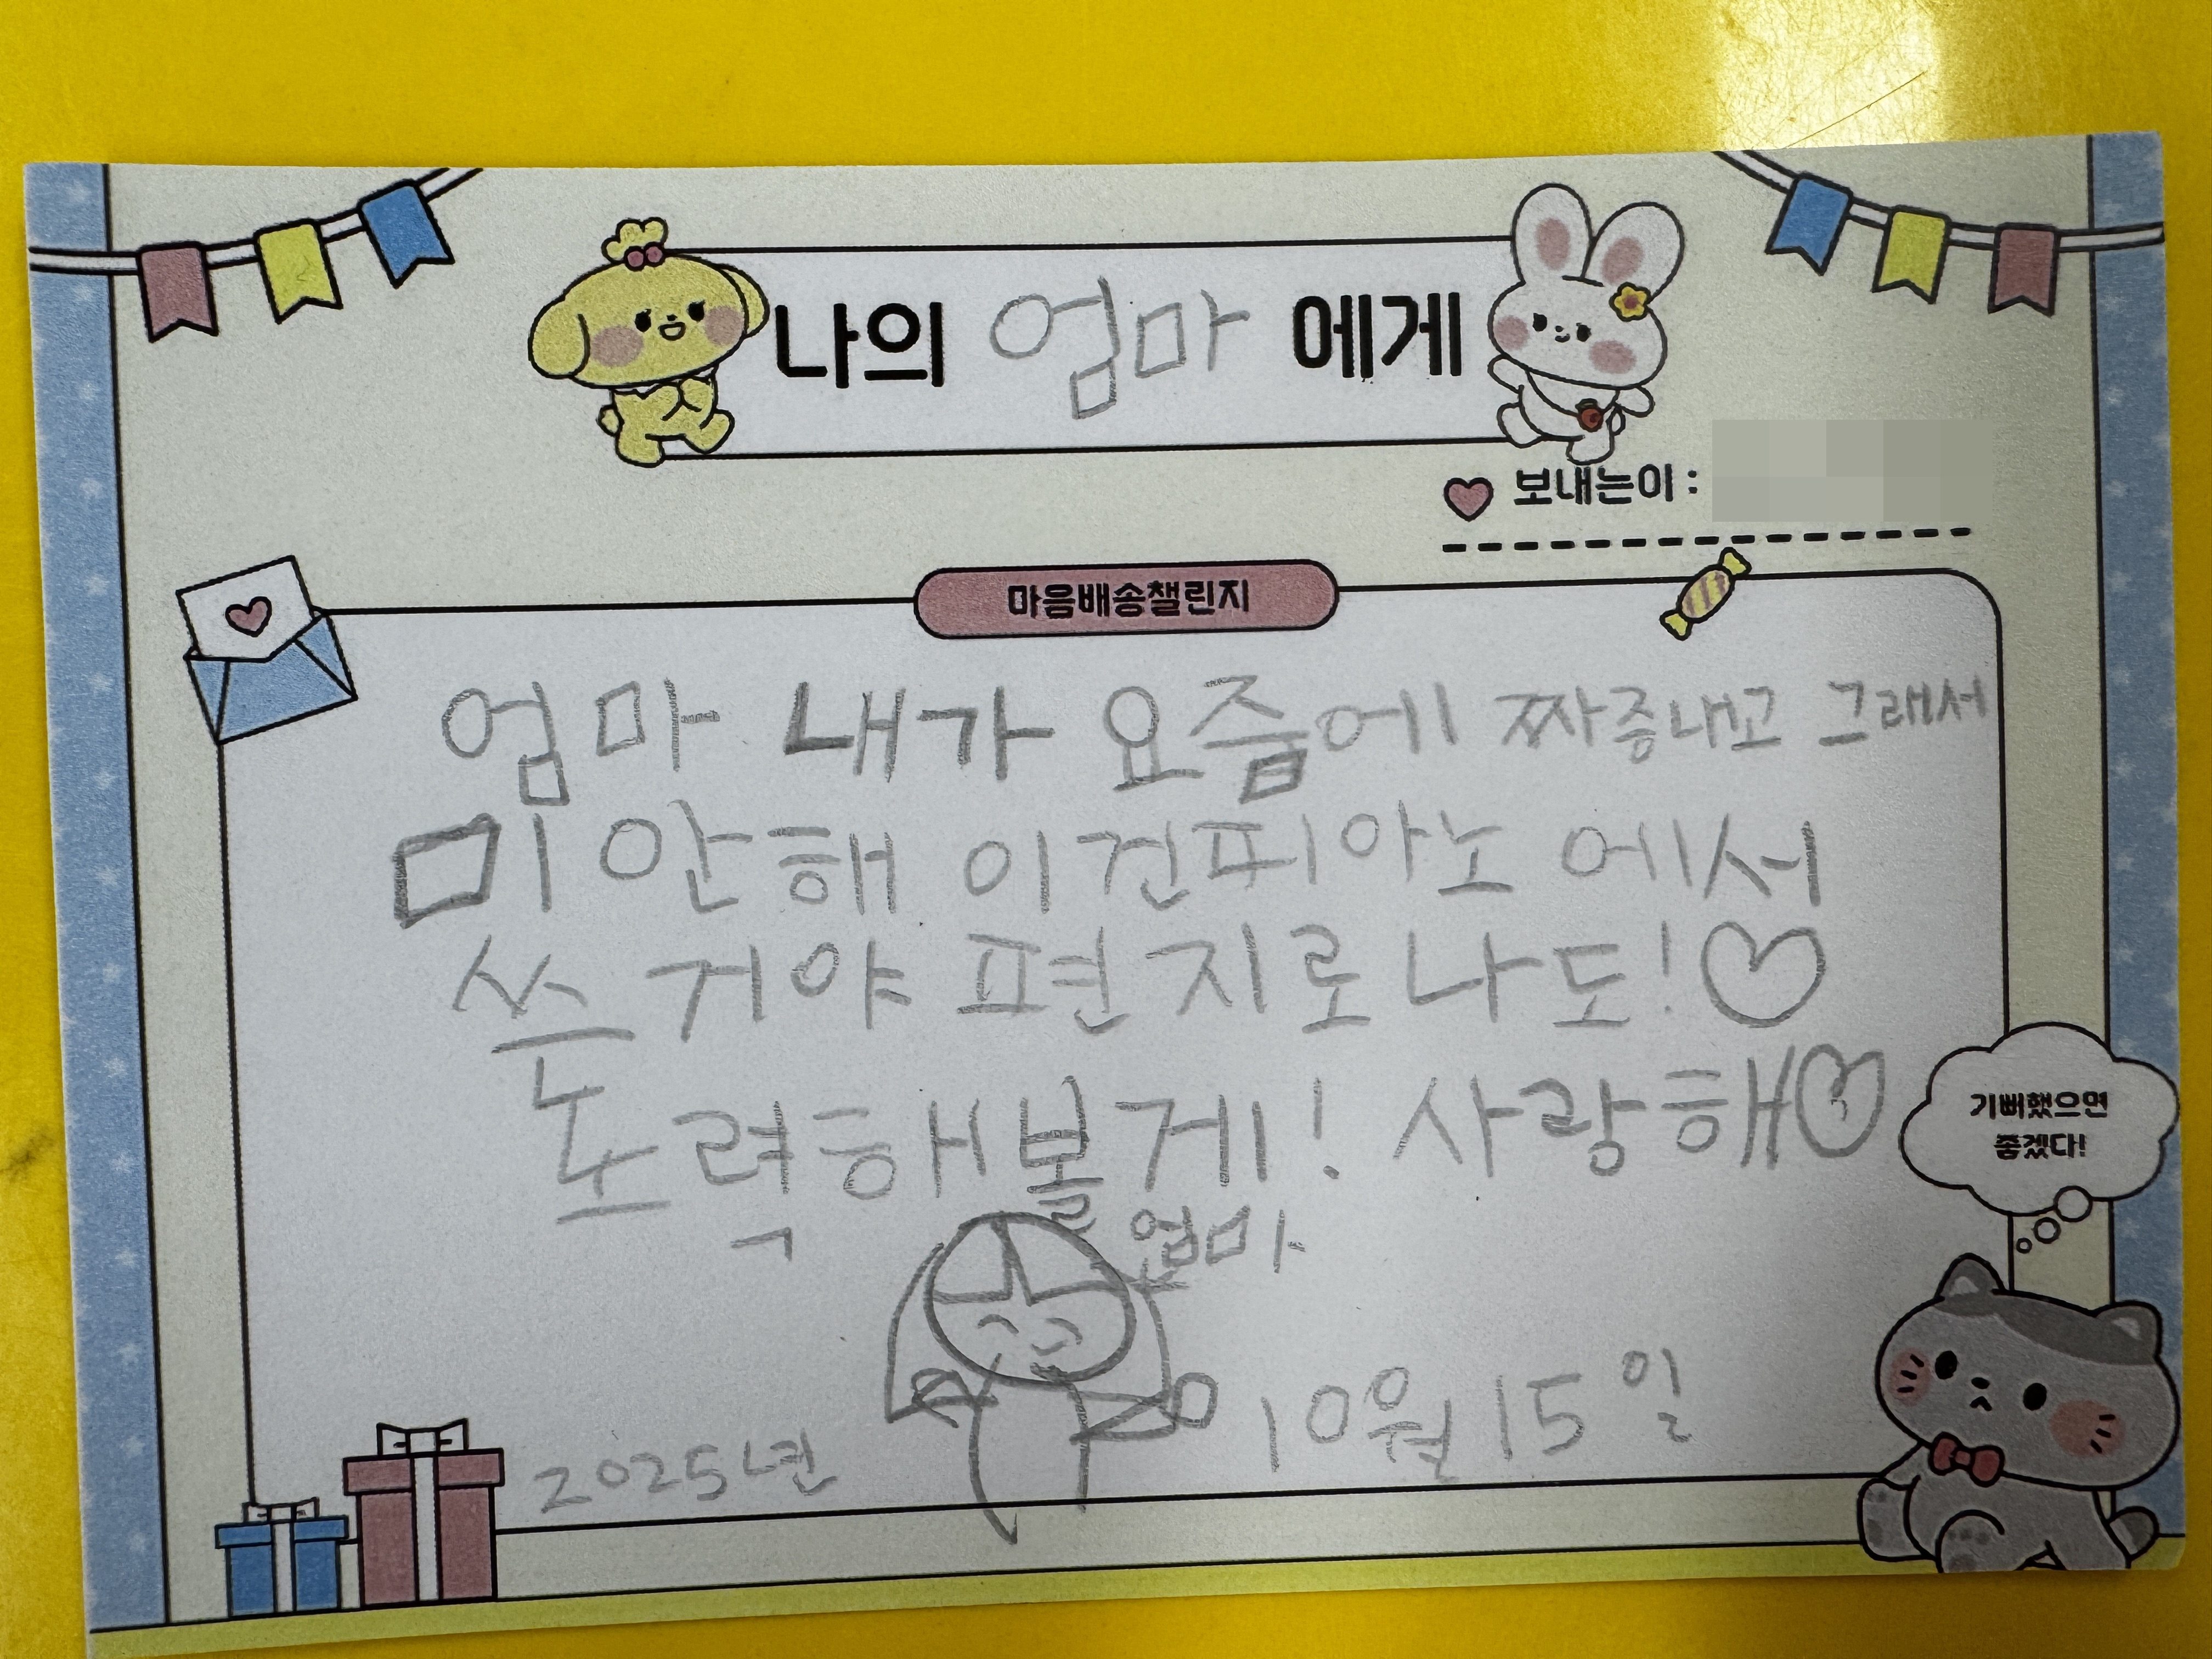 나의 엄마 에게
보내는이 :
마음배송챌린지
엄마 내가 요즘에 짜증내고 그래서
미안해 이건피아노 에서
쓰거야 편지로 나도!♡
노력해볼게! 사랑해♡
엄마
2025년 10월 15일
기뻐했으면
좋겠다!